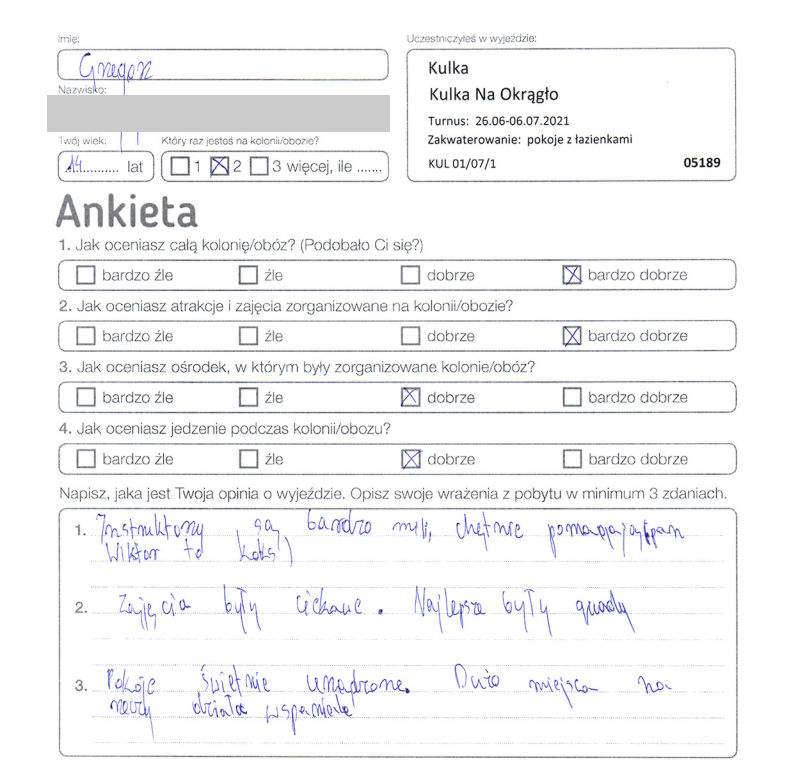 Imię:
Grzegorz
Nazwisko:
Twój wiek:
14 lat
Który raz jesteś na kolonii/obozie?
1 2 3 więcej, ile .......
Uczestniczyłeś w wyjeździe:
Kulka
Kulka Na Okrągło
Turnus: 26.06-06.07.2021
Zakwaterowanie: pokoje z łazienkami
KUL 01/07/1 05189
Ankieta
1. Jak oceniasz całą kolonię/obóz? (Podobało Ci się?)
bardzo źle źle dobrze bardzo dobrze
2. Jak oceniasz atrakcje i zajęcia zorganizowane na kolonii/obozie?
bardzo źle źle dobrze bardzo dobrze
3. Jak oceniasz ośrodek, w którym były zorganizowane kolonie/obóz?
bardzo źle źle dobrze bardzo dobrze
4. Jak oceniasz jedzenie podczas kolonii/obozu?
bardzo źle źle dobrze bardzo dobrze
Napisz, jaka jest Twoja opinia o wyjeździe. Opisz swoje wrażenia z pobytu w minimum 3 zdaniach.
1. Instruktorzy są bardzo mili, chętnie pomagają (pan
Wiktor to koks)
2. Zajęcia były ciekawe. Najlepsze były quady
3. Pokoje świetnie urządzone. Dużo miejsca na
rzeczy działa wspaniale